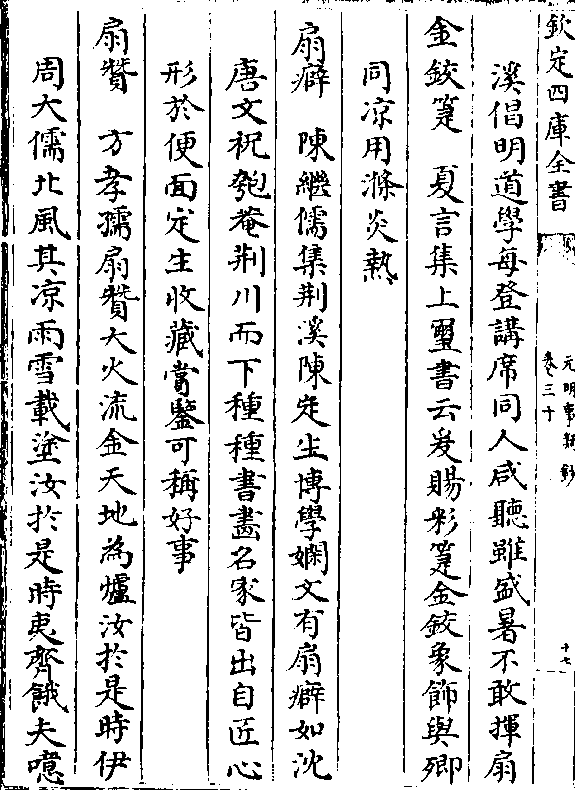 欽定四庫全書
元明事類鈔
卷三十
十七
溪倡明道學每登講席同人咸聽雖盛暑不敢揮扇
金鉸箑　夏言集上璽書云爰賜彩箑金鉸象飾與卿
同凉用滌炎熱
扇癖　陳繼儒集荆溪陳定生博學嫻文有扇癖如沈
唐文祝匏菴荆川而下種種書畵名家皆出自匠心
形於便面定生收藏賞鑒可稱好事
扇贊　方孝孺扇贊大火流金天地為爐汝於是時伊
周大儒北風其凉雨雪載塗汝於是時夷齊餓夫噫